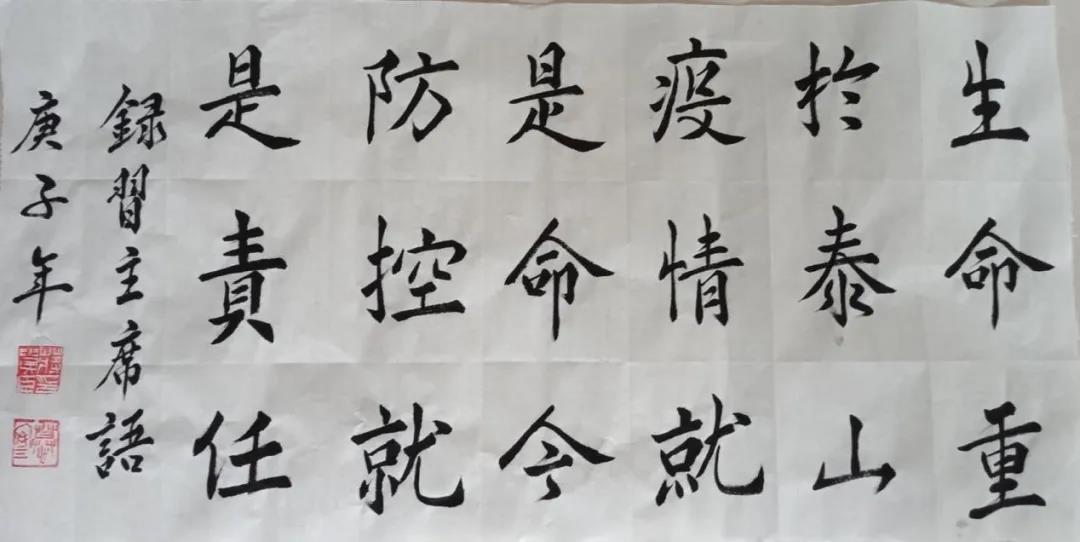 生命重
於泰山
疫情就
是命令
防控就
是責任
録習主席語
庚子年